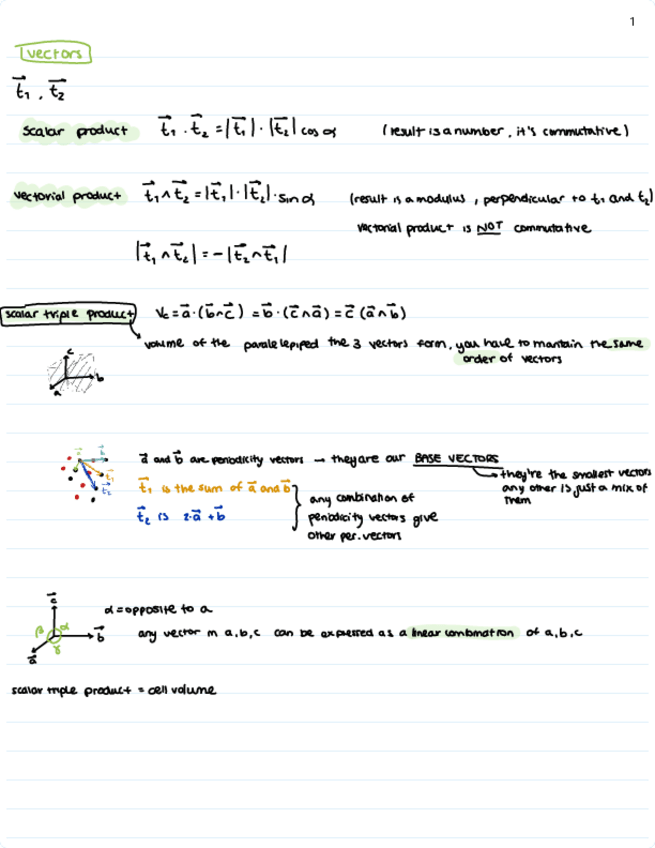 1
vectors
t₁ . t₂
scalar product t₁ . t₂ = |t₁| . |t₂| cos α (result is a number, it's commutative)
vectorial product t₁ ∧ t₂ = |t₁| . |t₂| . sin α (result is a modulus, perpendicular to t₁ and t₂)
vectorial product is NOT commutative
|t₁ ∧ t₂| = - |t₂ ∧ t₁|
scalar triple product Vc = a · (b ∧ c) = b · (c ∧ a) = c (a ∧ b)
volume of the paralelepiped the 3 vectors form, you have to mantain the same
order of vectors
c
b
a
a and b are periodicity vectors → they are our BASE VECTORS
they're the smallest vectors
any other is just a mix of
them
a b
t₁
t₂
t₁ is the sum of a and b
t₂ is 2·a + b
any combination of
periodicity vectors give
other per. vectors
c
α = opposite to a
β α
b
γ
a
any vector in a, b, c can be expressed as a linear combination of a, b, c
scalar triple product = cell volume